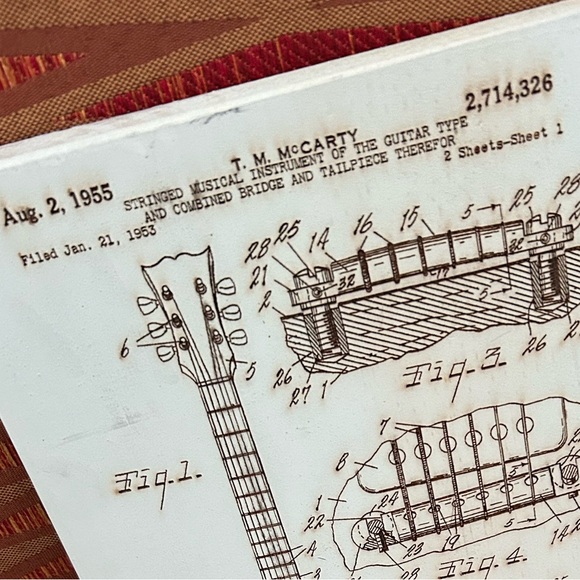 2,714,326
Aug. 2, 1955
T. M. McCARTY
STRINGED MUSICAL INSTRUMENT OF THE GUITAR TYPE
AND COMBINED BRIDGE AND TAILPIECE THEREFOR
Filed Jan. 21, 1953
2 Sheets-Sheet 1
28 25 14 16 15 5 25 28
21 32 17 22
2 5
6 5
26 27 1 26 27
Fig. 3.
Fig. 1.
7
8
1 24 5
22
23 19 5 14
4 28
3
Fig. 4.